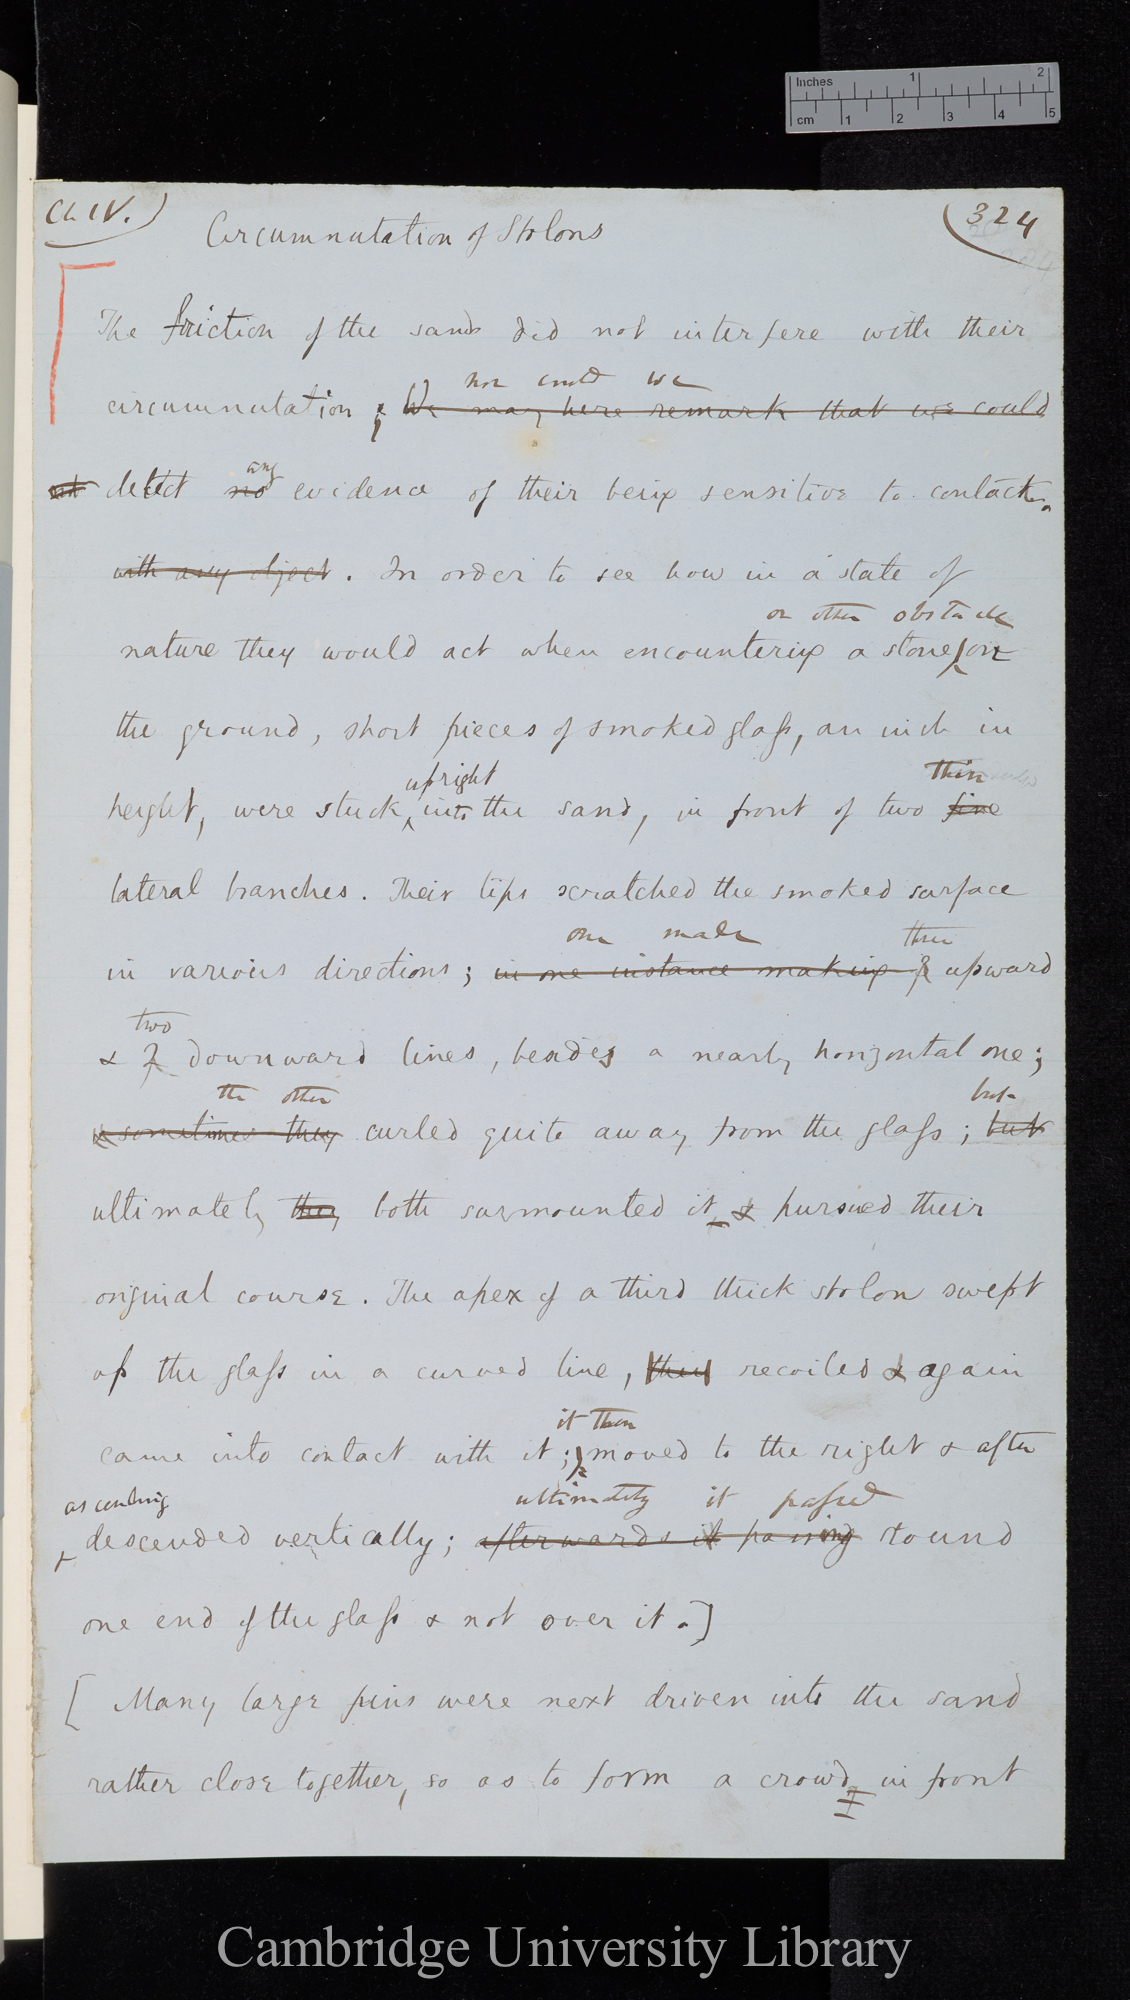 Inches 1 2
cm 1 2 3 4 5
Ch IV.) Circumnutation of Stolons (324
The friction of the sand did not interfere with their
nor could we
circumnutation; We may here remark that we could
any
not detect no evidence of their being sensitive to contact.
with any object. In order to see how in a state of
or other obstacle
nature they would act when encountering a stone on
the ground, short pieces of smoked glass, an inch in
upright thin
height, were stuck into the sand, in front of two fine
lateral branches. Their tips scratched the smoked surface
one made three
in various directions; in one instance making 3 upward
two
& 2 downward lines, besides a nearly horizontal one;
the other but
& sometimes they curled quite away from the glass; but
ultimately they both surmounted it & pursued their
original course. The apex of a third thick stolon swept
up the glass in a curved line, then recoiled & again
it then
came into contact with it; moved to the right & after
ascending ultimately it passed
descended vertically; afterwards it passing round
one end of the glass & not over it.]
[Many large pins were next driven into the sand
rather close together, so as to form a crowd in front
Cambridge University Library